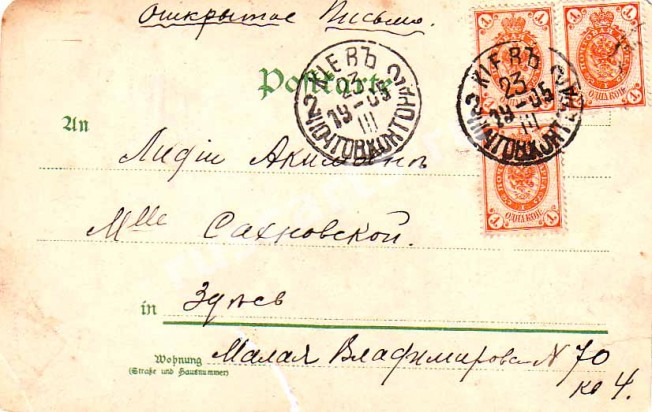 Открытое Письмо.
Postkarte
КІЕВЪ
23
19-05
III
2 ПОЧТОВ. КОНТОРА 2
КІЕВЪ
23
19-05
III
An
Лидіи Акимовнѣ
Mlle Сахновской.
in Здѣсь
Wohnung Малая Владимирова N 70
(Straße und Hausnummer)
кв 4.